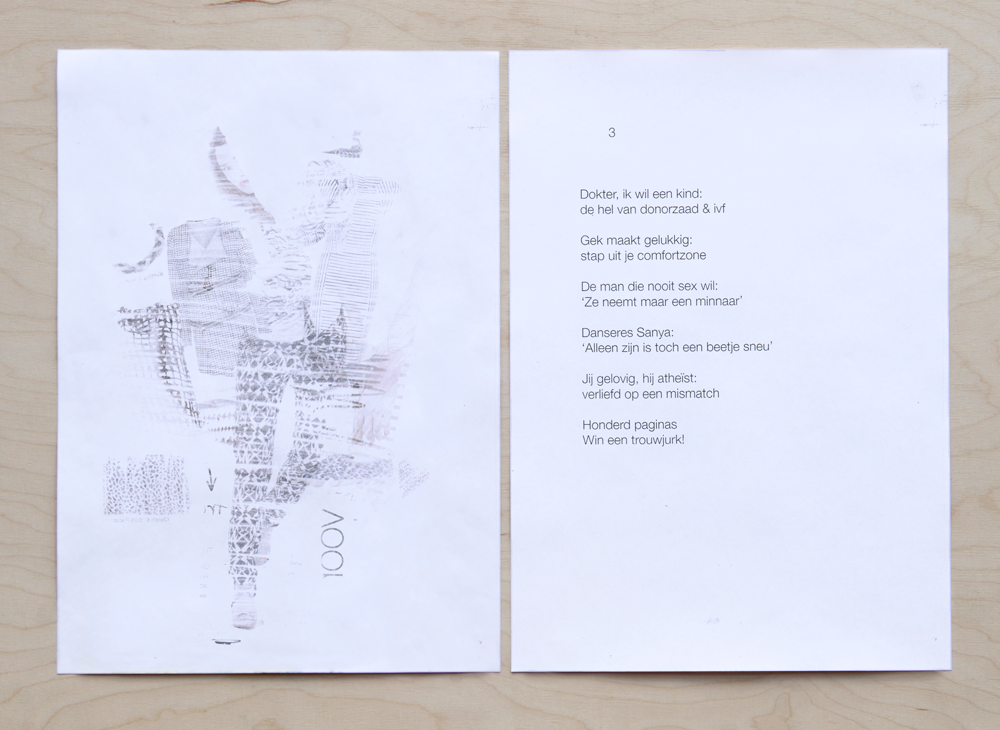 100V
3
Dokter, ik wil een kind:
de hel van donorzaad & ivf
Gek maakt gelukkig:
stap uit je comfortzone
De man die nooit sex wil:
‘Ze neemt maar een minnaar’
Danseres Sanya:
‘Alleen zijn is toch een beetje sneu’
Jij gelovig, hij atheïst:
verliefd op een mismatch
Honderd paginas
Win een trouwjurk!